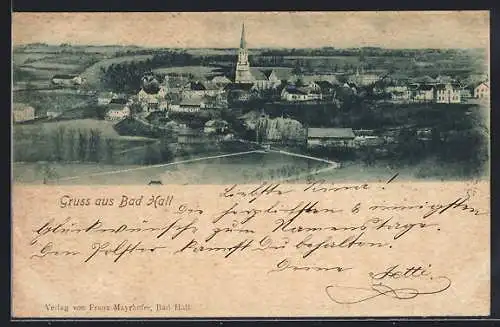 Gruss aus Bad Hall
Liebste Anna!
Die herzlichsten & innigsten
Glückwünsche zum Namenstage.
Den Polster kannst Du behalten.
Deine
Verlag von Franz Mayrhofer, Bad Hall.